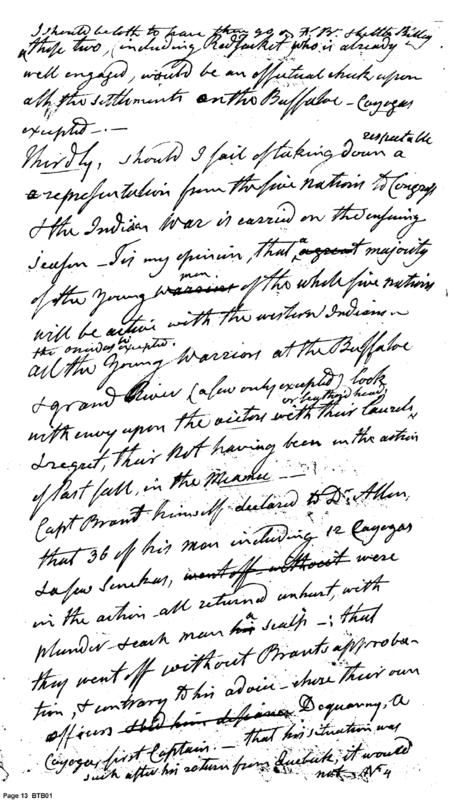 I should be loth to leave
these two, (including Redjacket who is already
well engaged, would be an effectual check upon
all the settlements on the Buffaloe - Cayogas
excepted -.-
respectable
Thirdly, should I fail of taking down a
representation from the five nations to Congress
& the Indian War is carried on the ensuing
season - Tis my opinion, that a great majority
men
of the Young warriors of the whole five nations
will be active with the western Indians -
the oneidas excepted.
all the Young Warriors at the Buffaloe
& grand River (a few only excepted) look
or
with envy upon the victors with their laurels,
& regret, their Not having been in the action
of last fall, in the Miamee -
Capt Brant himself declared to Dr. Allen,
that 36 of his men including 12 Cayogas
& a few Senekas, went off without were
in the action - all returned unhurt, with
plunder & each man his a scalp -; that
they went off without Brants approba-
tion, & contrary to his advice - chose their own
officers Dequanny, a
Cayogas first Captain. - that his situation was
such after his return from Quebeck, it would
not - No 4
Page 13 BTB01